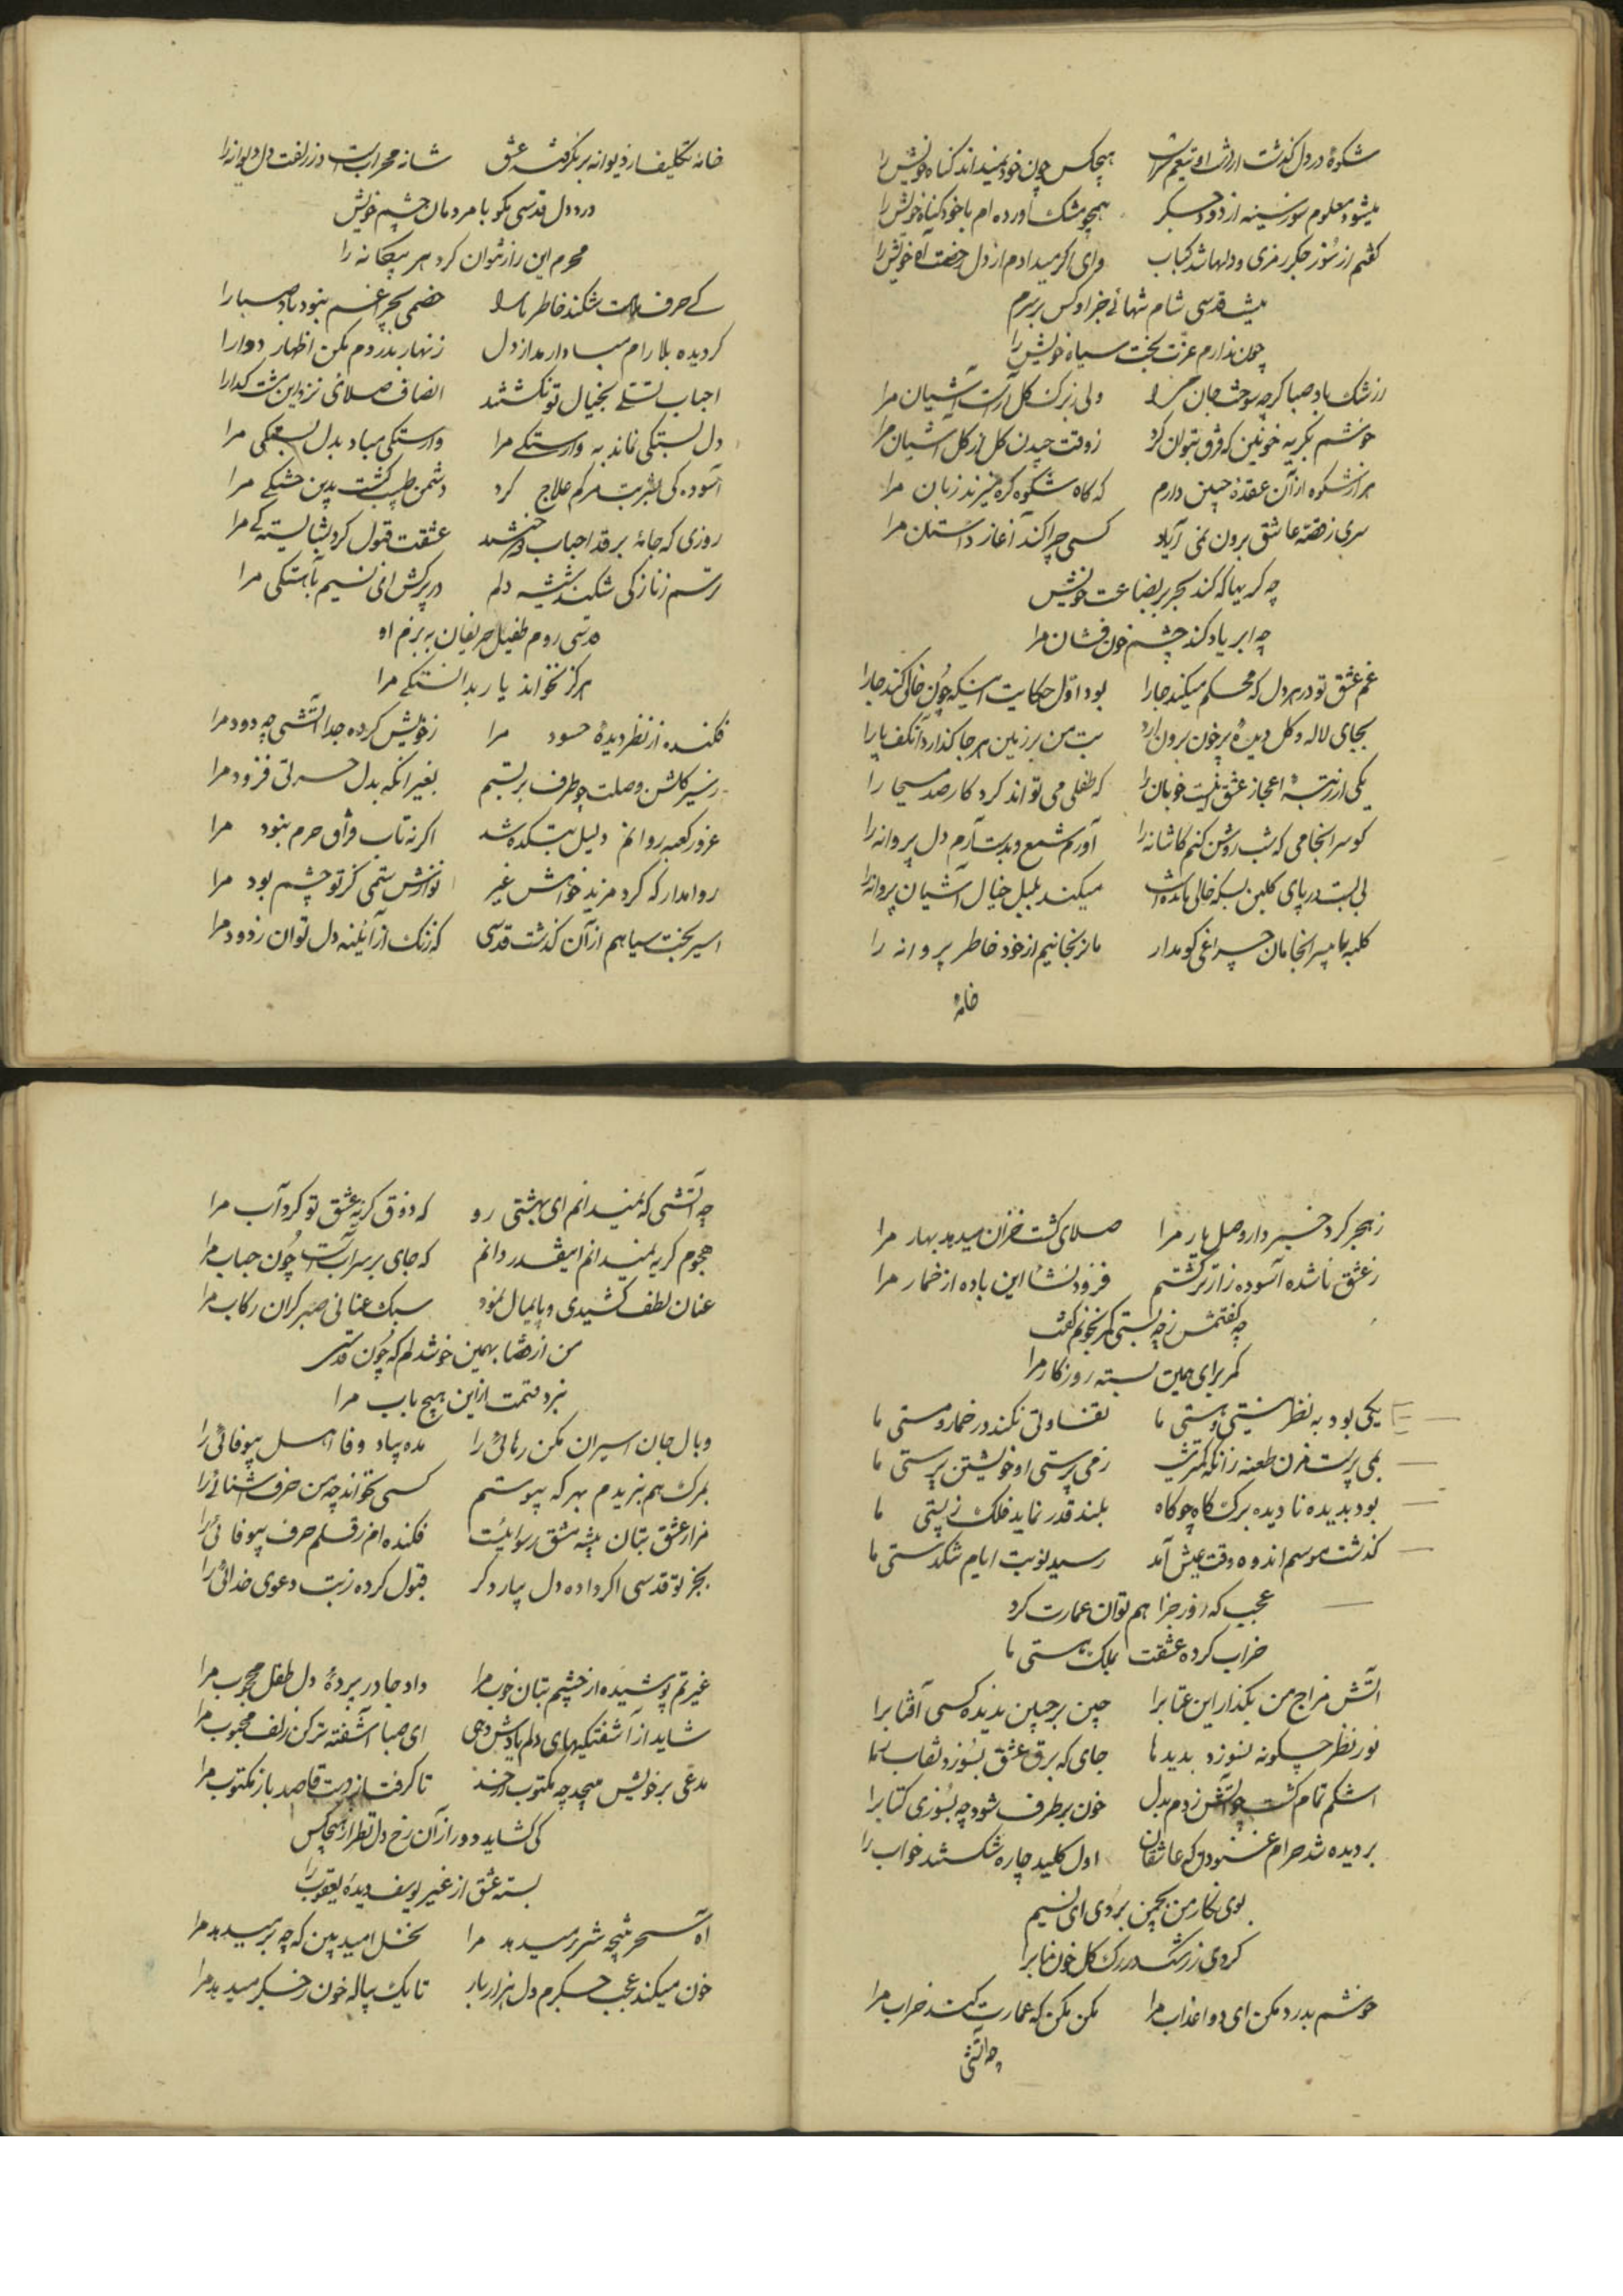 شکوهٔ در دل گذشت هیچکس چون خود نمیداند گناه خویش را
میشود معلوم سوز سینه از دود جگر همچو مشک آورده ام با خود گناه خویش را
گفتم از سوز جگر رمزی و دلها شد کباب وای اگر میدادم از دل رخصت آه خویش را
نیست قدسی شام تنهائی جز او کس بر سرم
چون ندارم عزت بخت سیاه خویش را
ز رشک باد صبا گرچه سوخت جان مرا ولی ز برک کل آراست آشیان مرا
خوشم بگریه خونین که فرق نتوان کرد ز وقت چیدن کل از کل آشیان مرا
هزار شکوه از آن عقدهٔ جبین دارم که گاه شکوه گره میزند زبان مرا
سری ز قصه عاشق برون نمی آرد کسی چرا کند آغاز داستان مرا
چه گریها که کند بحر بر بضاعت خویش
چه ابر یاد کند چشم خون فشان مرا
غم عشق تو در هر دل که محکم میکند جا را بود اول حکایت اینکه چون خالی کند جا را
بجای لاله و کل دیدهٔ پرخون برون آرد بت من بر زمین هر جا گذارد آن کف پا را
یکی از رتبهٔ اعجاز عشق اینست خوبان را که طفلی می تواند کرد کار صد مسیحا را
کو سرانجامی که شب روشن کنم کاشانه را آورم شمع و بدست آرم دل پروانه را
بی لبت در پای کلبن بسکه خالی مانده است میکند بلبل خیال آشیان پروانه را
کلبه ما بی سرانجامان چراغی کو مدار ما نرنجانیم از خود خاطر پروانه را
خانهٔ
خانهٔ تکلیف از دیوانه برنگرفت عشق شانه محرابست در زلفت دل دیوانه را
درد دل قدسی مگو با مردمان چشم خویش
محرم این راز نتوان کرد هر بیگانه را
کی حرف ملامت شکند خاطر ما را خصمی بچراغم نبود باد صبا را
گردیده بلا رام مبادا رمد از دل زنهار بدردم مکن اظهار دوا را
احباب تسلی بخیال تو نگشتند انصاف صلائی نزد این مشت گدا را
دل بستگی نماند به وارستگی مرا وارستگی مباد بدل بستگی مرا
آسوده گی بشربت مرگم علاج کرد دشمن طبیب گشت بدین خستگی مرا
روزی که جامهٔ بر قد احباب دوختند عشقت قبول کرد بشایستگی مرا
ترسم ز نازکی شکند شیشه دلم در بر کش ای نسیم بآهستگی مرا
قدسی روم طفیل حریفان به بزم او
هرگز نخواند یار بدانستگی مرا
فکنده از نظر دیدهٔ حسود مرا ز خویش کرده جدا آتشی چه دود مرا
ز سیر کلشن وصلت چه طرف بربستم بغیر آنکه بدل حسرتی فزود مرا
غرور کعبه روانم دلیل بتکده شد اگرنه تاب فراق حرم نبود مرا
روا مدار که کرد مزید خواهش غیر نوازش ستمی کز تو چشم بود مرا
اسیر بخت سیاهم از آن گذشت قدسی که زنک از آئینه دل توان زدود مرا
ز هجر کرد خبردار وصل یار مرا صلای گشت خزان میدهد بهار مرا
ز عشق ناشده آسوده زارتر گشتم فزود نشاء این باده از خمار مرا
چه گفتمش ز چه بستی کمر بخونم گفت
کمر برای همین بسته روزگار مرا
یکی بود به نظر نیستی و هستی ما تفاوتی نکند در خمار و مستی ما
بمی پرست مزن طعنه زانکه کمتر نیست ز می پرستی او خویشتن پرستی ما
بود بدیده نادیده برک کاه چو کاه بلند قدر نماید فلک ز پستی ما
گذشت موسم اندوه وقت عیش آمد رسید نوبت ایام تنگدستی ما
عجب که روز جزا هم توان عمارت کرد
خراب کرده عشقت ملک هستی ما
آتش مزاج من بگذار این عتاب را چین بر جبین ندیده کسی آفتاب را
نور نظر چگونه نسوزد بدیدها جای که برق عشق بسوزد نقاب ها
اشکم تمام گشت چو آتش زدم بدل خون برطرف شود چه بسوزی کتاب را
بر دیده شد حرام غنودن که عاشقان اول کلید چاره شکستند خواب را
بوی نگار من بچمن بردی ای نسیم
کردی ز رشک در رک کل خون ناب را
خوشم بدرد مکن ای دوا عذاب مرا مکن مکن که عمارت کند خراب مرا
چه آتشی
چه آتشی که نمیدانم ای بهشتی رو که ذوق گریه عشق تو کرد آب مرا
هجوم گریه نمیدانم اینقدر دانم که جای بر سر آبست چون حباب مرا
عنان لطف کشیدی و پایمال نمود سبک عنانی صبر گران رکاب مرا
من از قضا بهمین خوشدلم که چون قدسی
نبرد قسمت ازین هیچ باب مرا
وبال جان اسیران مکن رهائی را مده بیاد وفا اهل بیوفائی را
بمرک هم نبریدم بهر که پیوستم کسی نخواند چه من حرف آشنائی را
مرا ز عشق بتان پیشه مشق رسوائیست فکنده ام ز قلم حرف بیوفائی را
بجز تو قدسی اگر داده دل بیار دگر قبول کرده ز بت دعوی خدائی را
غیرتم پوشیده از چشم بتان خوب مرا داد جا در پردهٔ دل طفل محجوب مرا
شاید از آشفتگیهای دلم یادش دهی ای صبا آشفته تر کن زلف محبوب مرا
مدعی بر خویش میپیچد چه مکتوب تا گرفت از دست قاصد باز مکتوب مرا
کی گشاید دور از آن رخ دل نظر از هیچکس
بسته عشق از غیر یوسف دیدهٔ یعقوب را
آه سحر نتیجه شرر میدهد مرا نخل امید بین که چه بر میدهد مرا
خون میکند عجب جگرم دل هزار بار تا یک پیاله خون جگر میدهد مرا